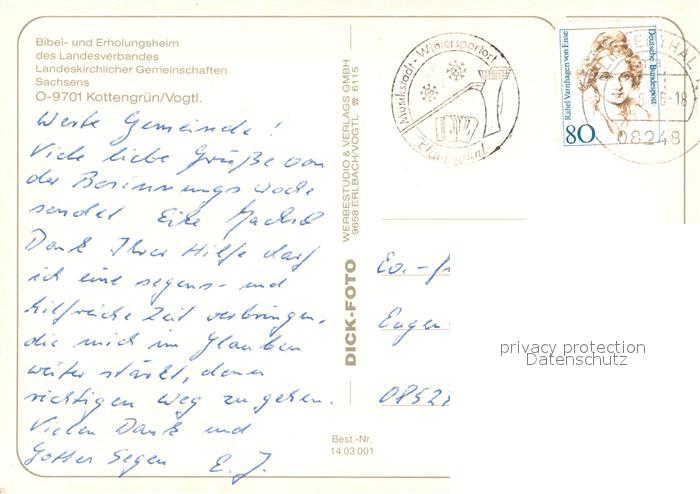 Bibel- und Erholungsheim
des Landesverbandes
Landeskirchlicher Gemeinschaften
Sachsens
O-9701 Kottengrün/Vogtl.
Werte Gemeinde!
Viele liebe Grüße von
der Besinnungswoche
sendet
Dank Ihrer Hilfe darf
ich eine segens- und
hilfreiche Zeit verbringen,
die mich im Glauben
weiter stärkt, den
richtigen Weg zu gehen.
Vielen Dank und
Gottes Segen E. J.
DICK-FOTO
WERBESTUDIO & VERLAGS GMBH
9658 ERLBACH/VOGTL. ☎ 6115
Best.-Nr.
14 03 001
Musikstadt - Wintersportort
Klingenthal
80
Rahel Varnhagen von Ense
Deutsche Bundespost
-18
08248
Ev.-
Eugen
0852
privacy protection
Datenschutz